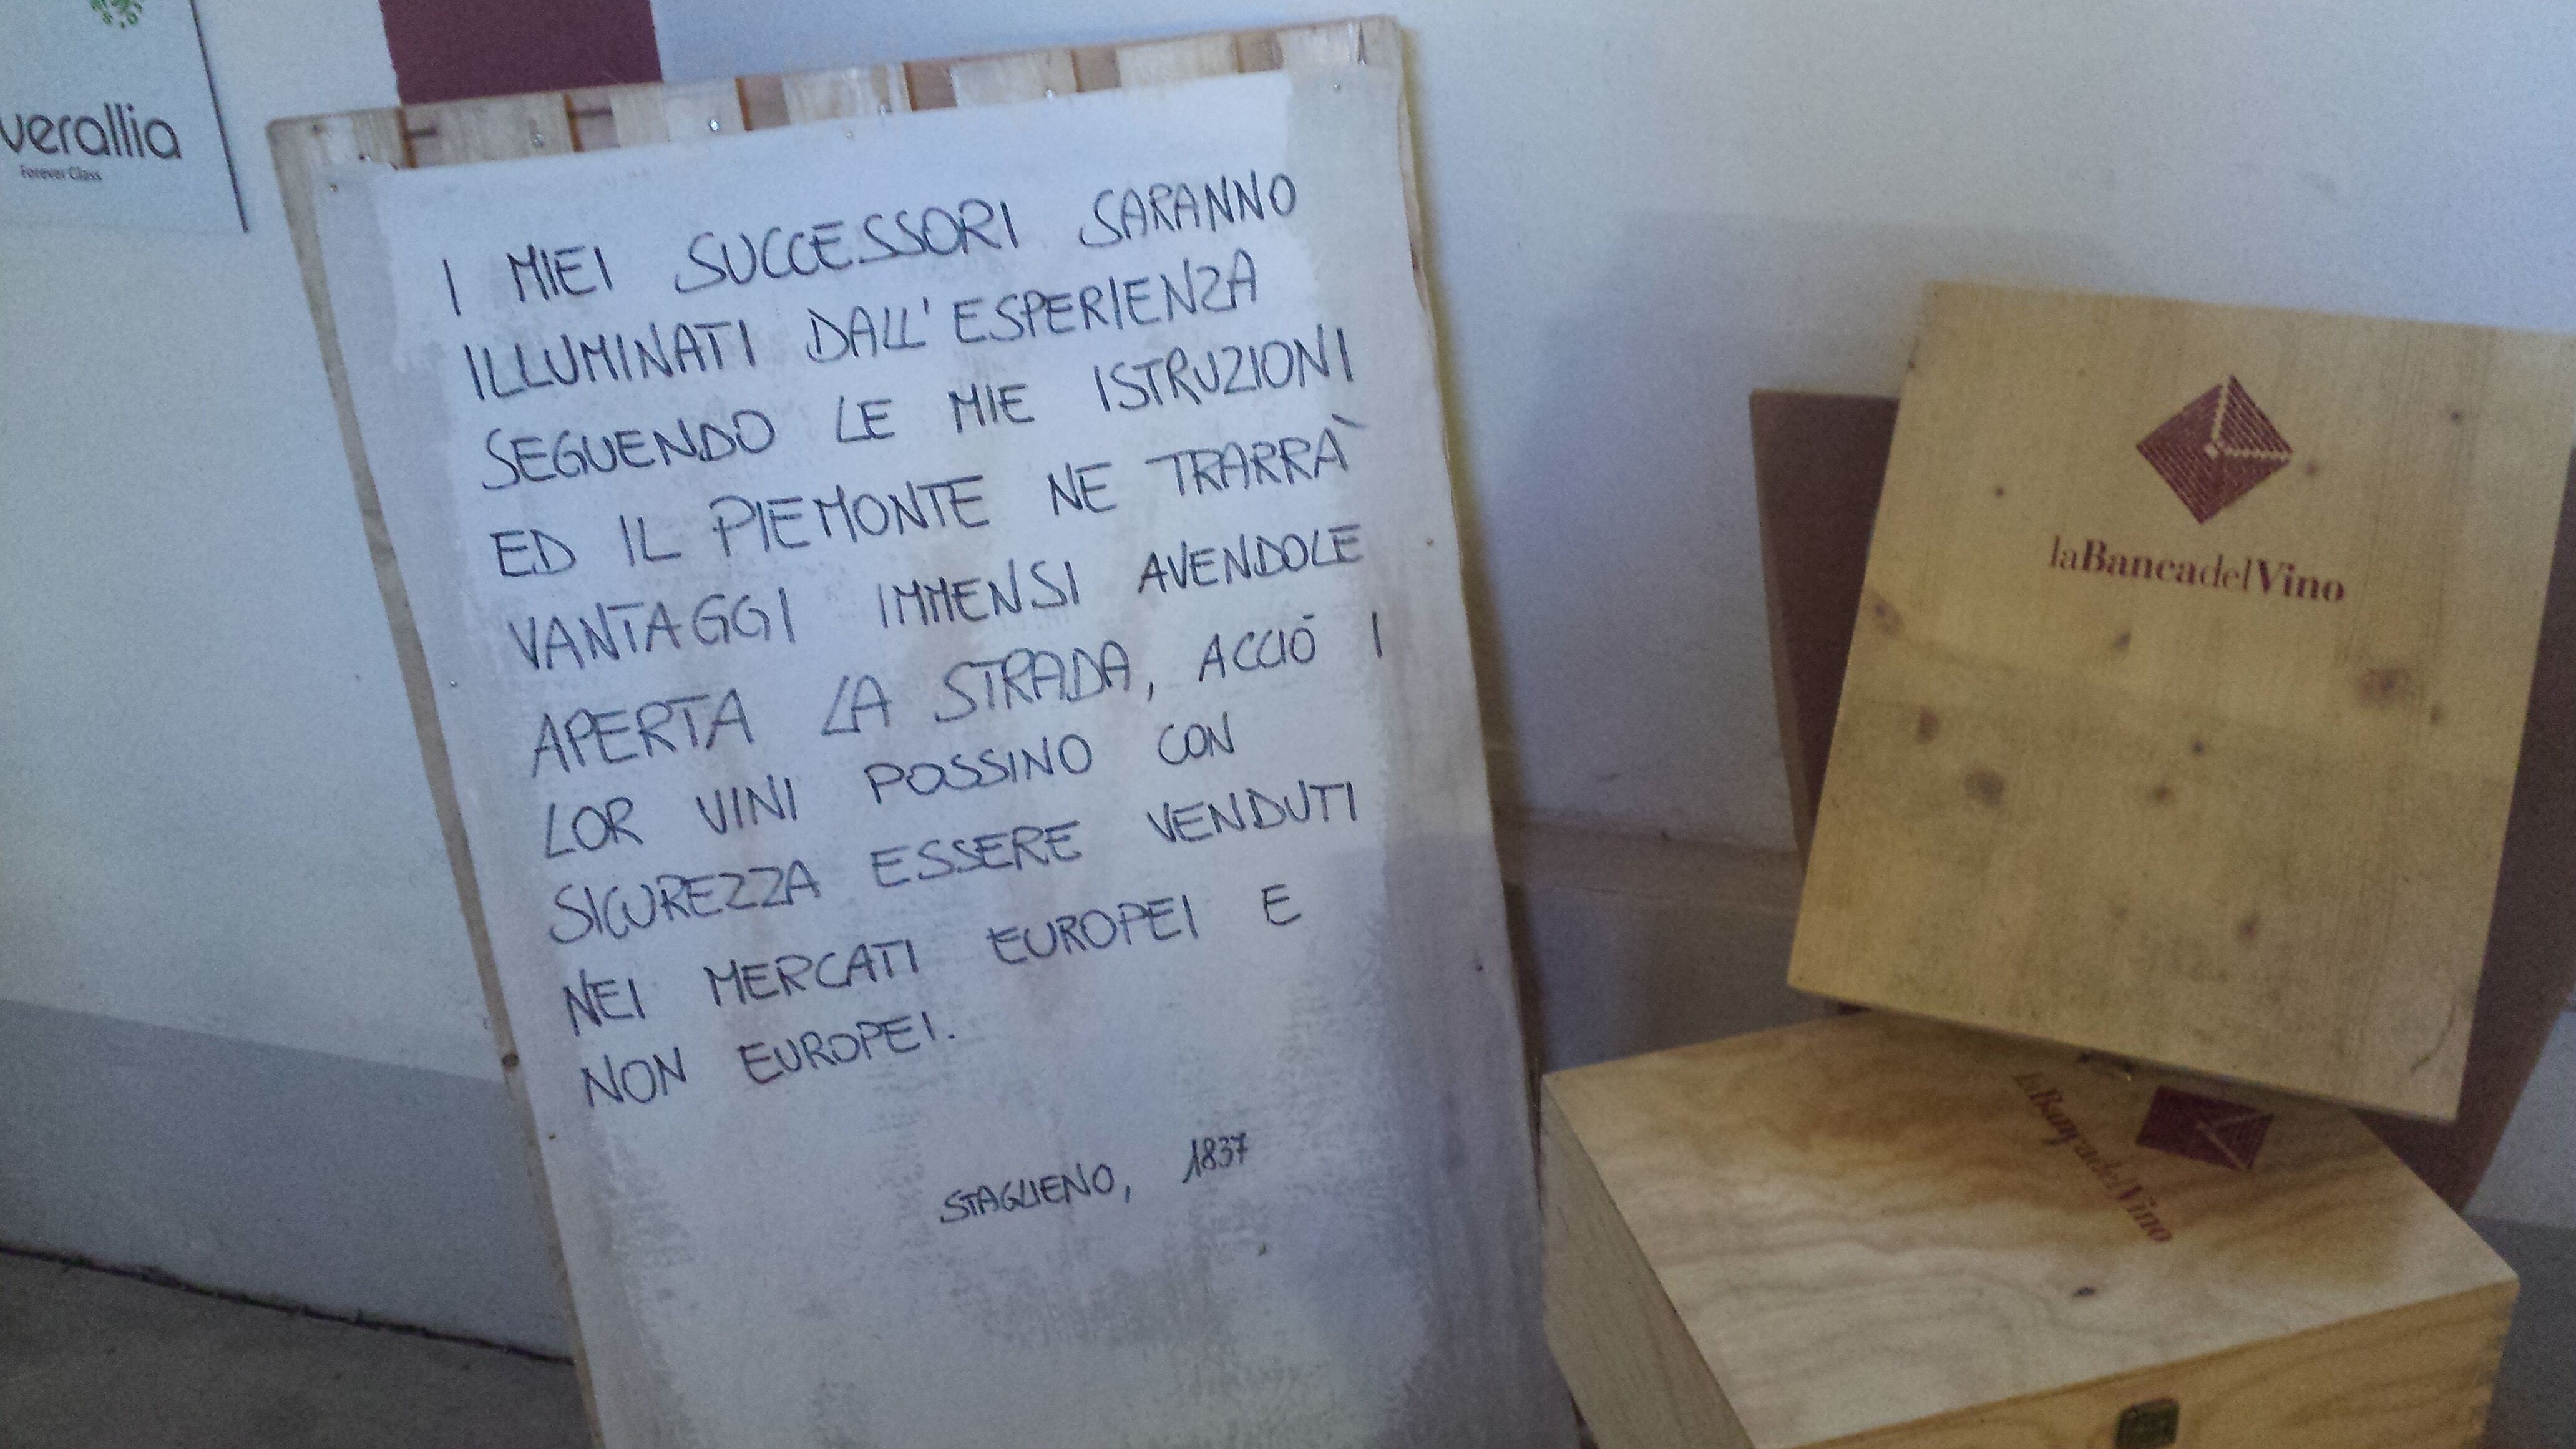 verallia
Forever Glass
I MIEI SUCCESSORI SARANNO
ILLUMINATI DALL'ESPERIENZA
SEGUENDO LE MIE ISTRUZIONI
ED IL PIEMONTE NE TRARRÀ
VANTAGGI IMMENSI AVENDOLE
APERTA LA STRADA, ACCIÒ I
LOR VINI POSSINO CON
SICUREZZA ESSERE VENDUTI
NEI MERCATI EUROPEI E
NON EUROPEI.
STAGLIENO, 1837
laBancadelVino
laBancadelVino